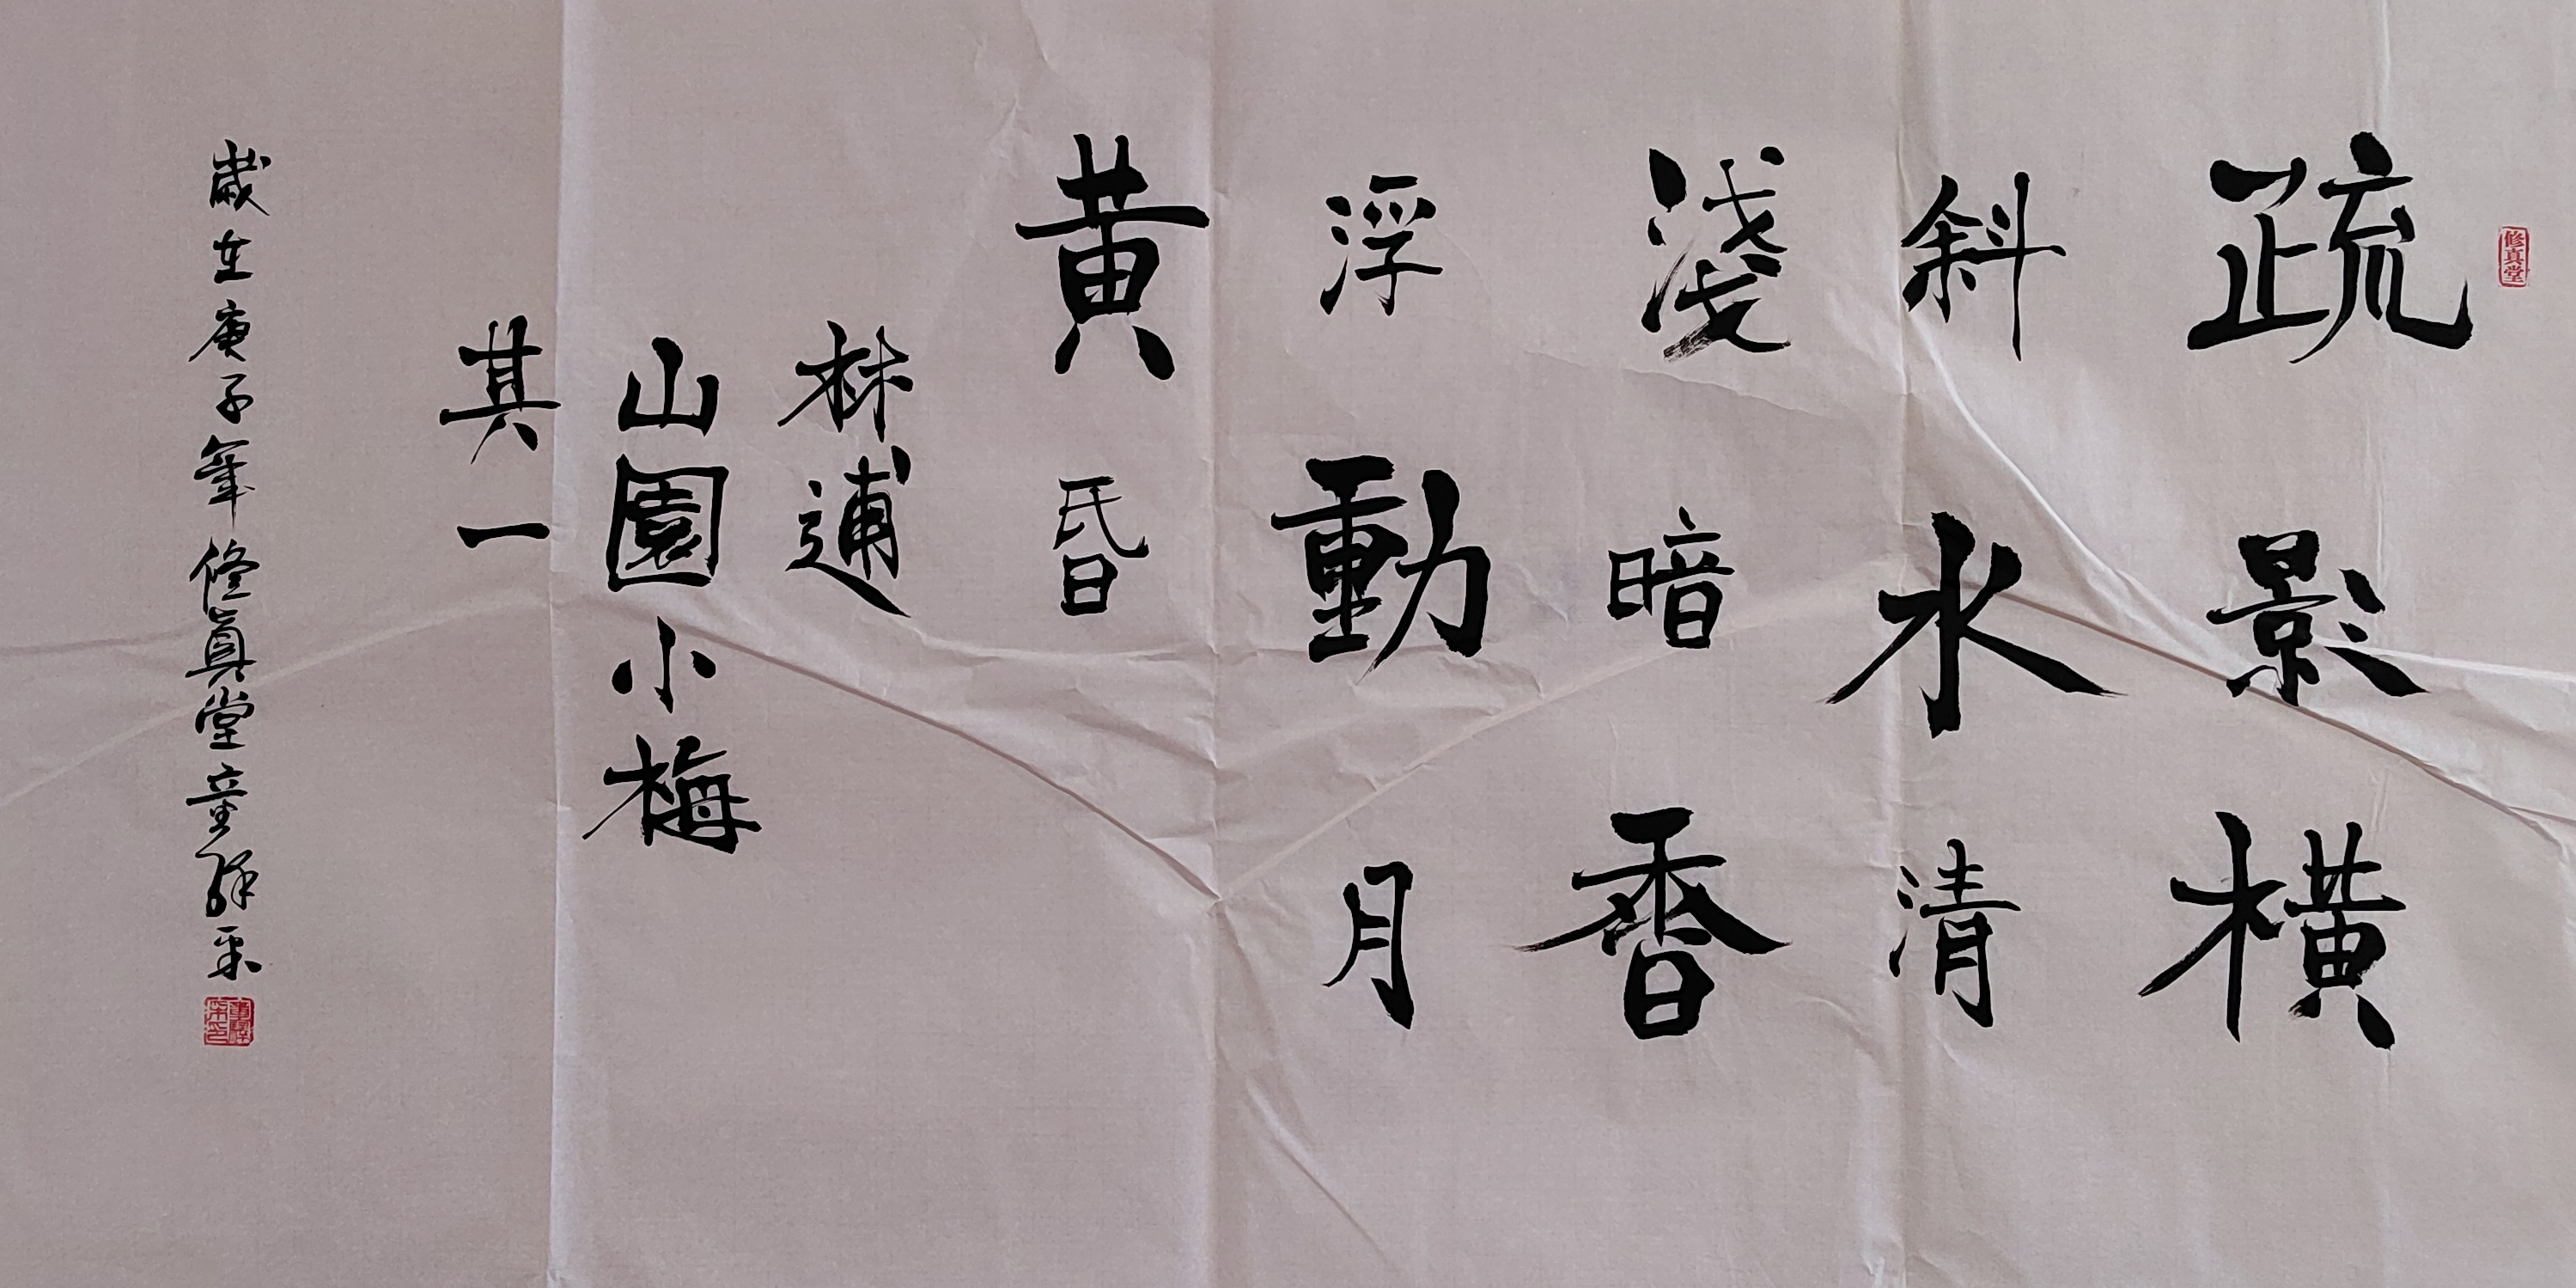 修真堂
疏影橫
斜水清
淺暗香
浮動月
黄昏
林逋
山園小梅
其一
歲在庚子年修真堂童